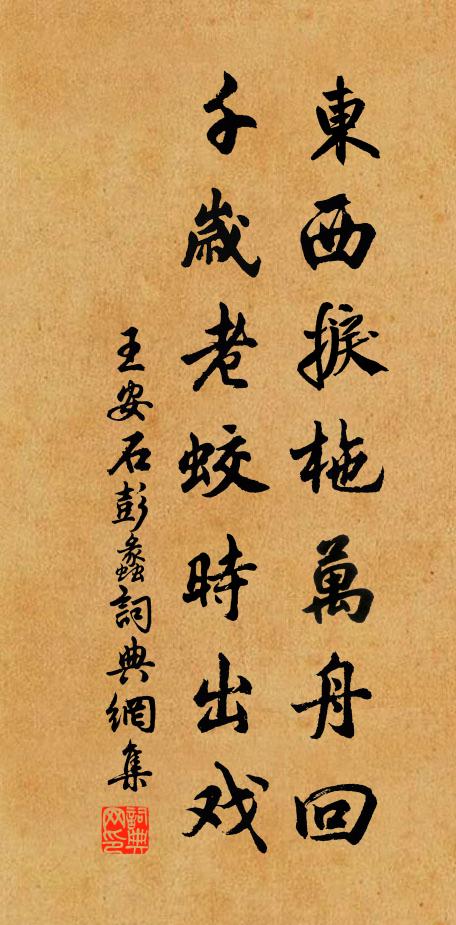 東西捩柂萬舟回
千歲老蛟時出戏
王安石彭蠡詞典網集
詞典网印